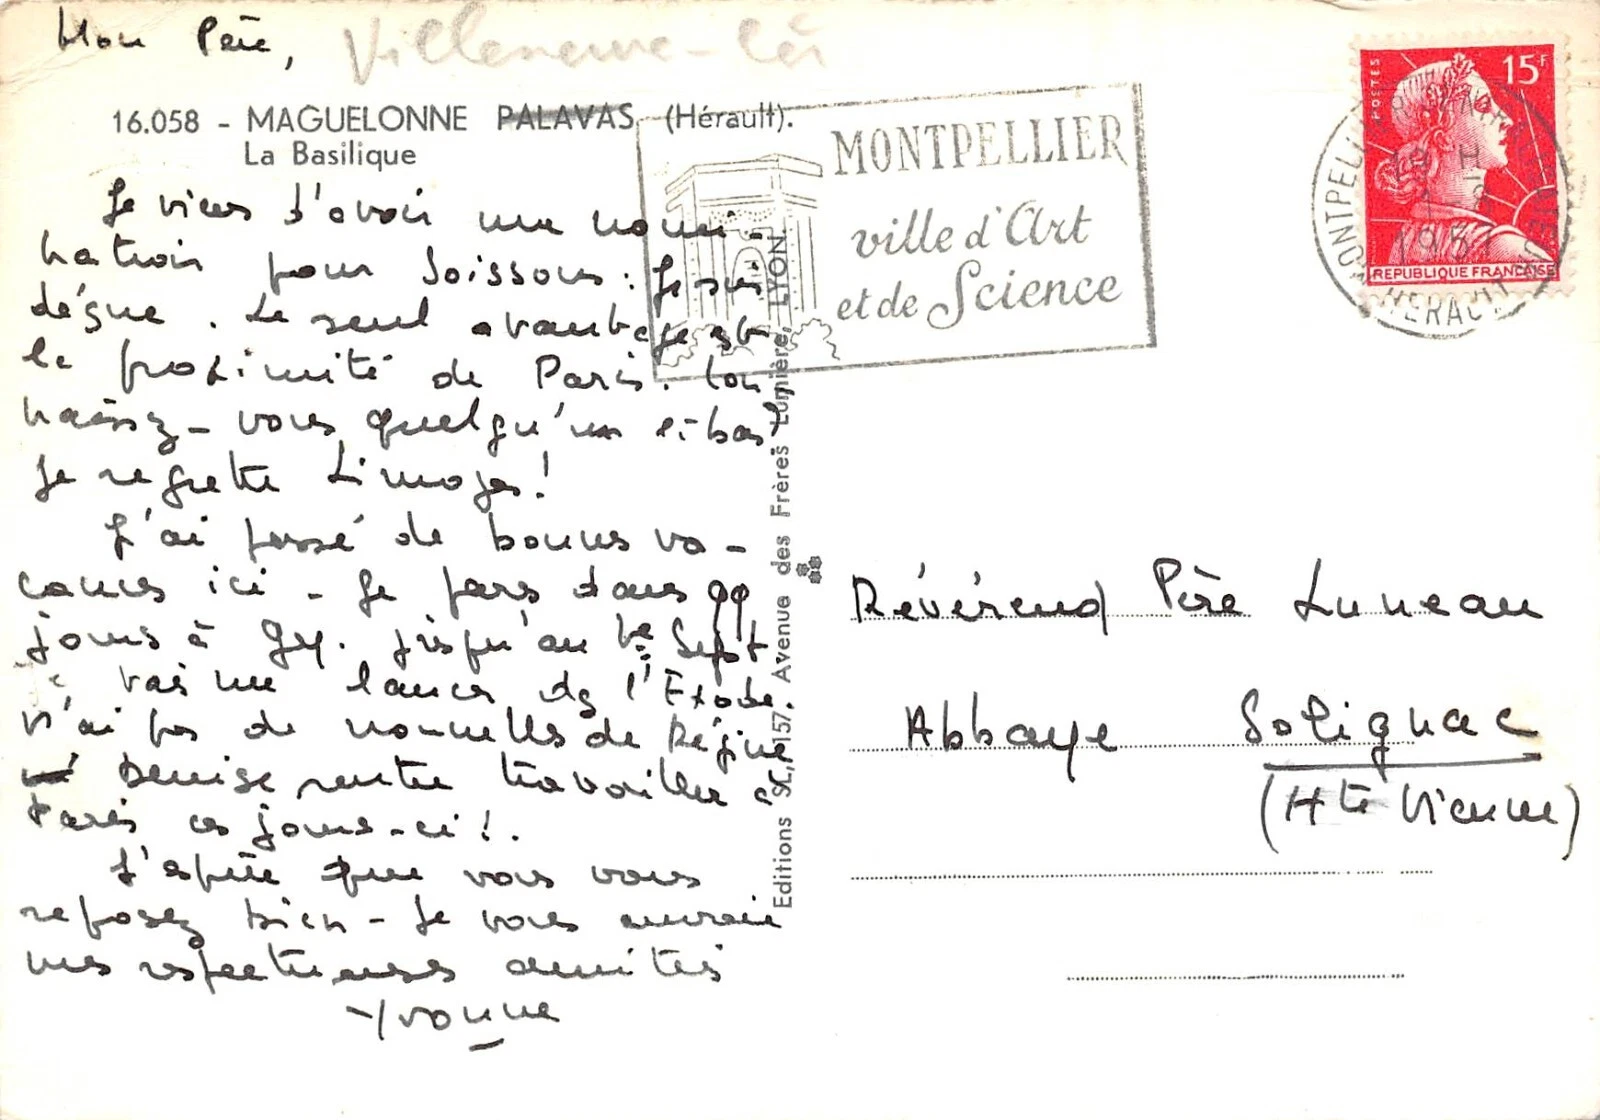 Mon Père,
Villeneuve-lès
16.058 - MAGUELONNE PALAVAS (Hérault).
La Basilique
Je viens d'avoir une nomi-
nation pour Soissons. Je suis
déçue. Le seul avantage est
la proximité de Paris. Con
naissez-vous quelqu'un là-bas?
Je regrette Limoges!
J'ai passé de bonnes va-
cances ici - Je pars dans qq
jours à Gy. jusqu'au 1er Sept
N'ai pas de nouvelles de Régine
Denise rentre travailler à
Paris ces jours-ci!.
J'espère que vous vous
reposez bien - Je vous envoie
mes respectueuses amitiés
Yvonne
MONTPELLIER
ville d'Art
et de Science
15F
POSTES
REPUBLIQUE FRANÇAISE
MONTPELLIER
HERAULT
Editions SL, 157 Avenue des Frères Lumière, LYON
Révérend Père Luneau
Abbaye Solignac
(Hte Vienne)